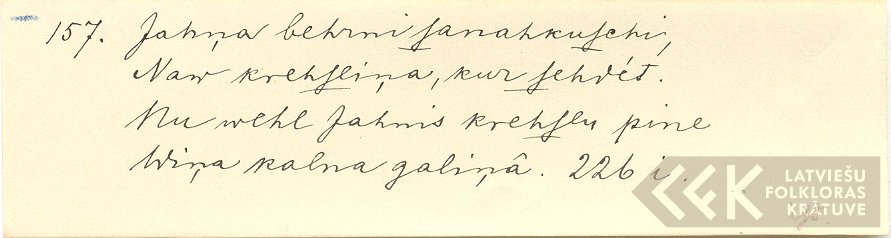 157. Jahņa behrni sanahkuschi,
Naw krehsliņa, kur sehdét.
Nu wehl Jahnis krehslu pine
Wiņa kalna galiņâ. 226 i.
LATVIEŠU
FOLKLORAS
KRĀTUVE